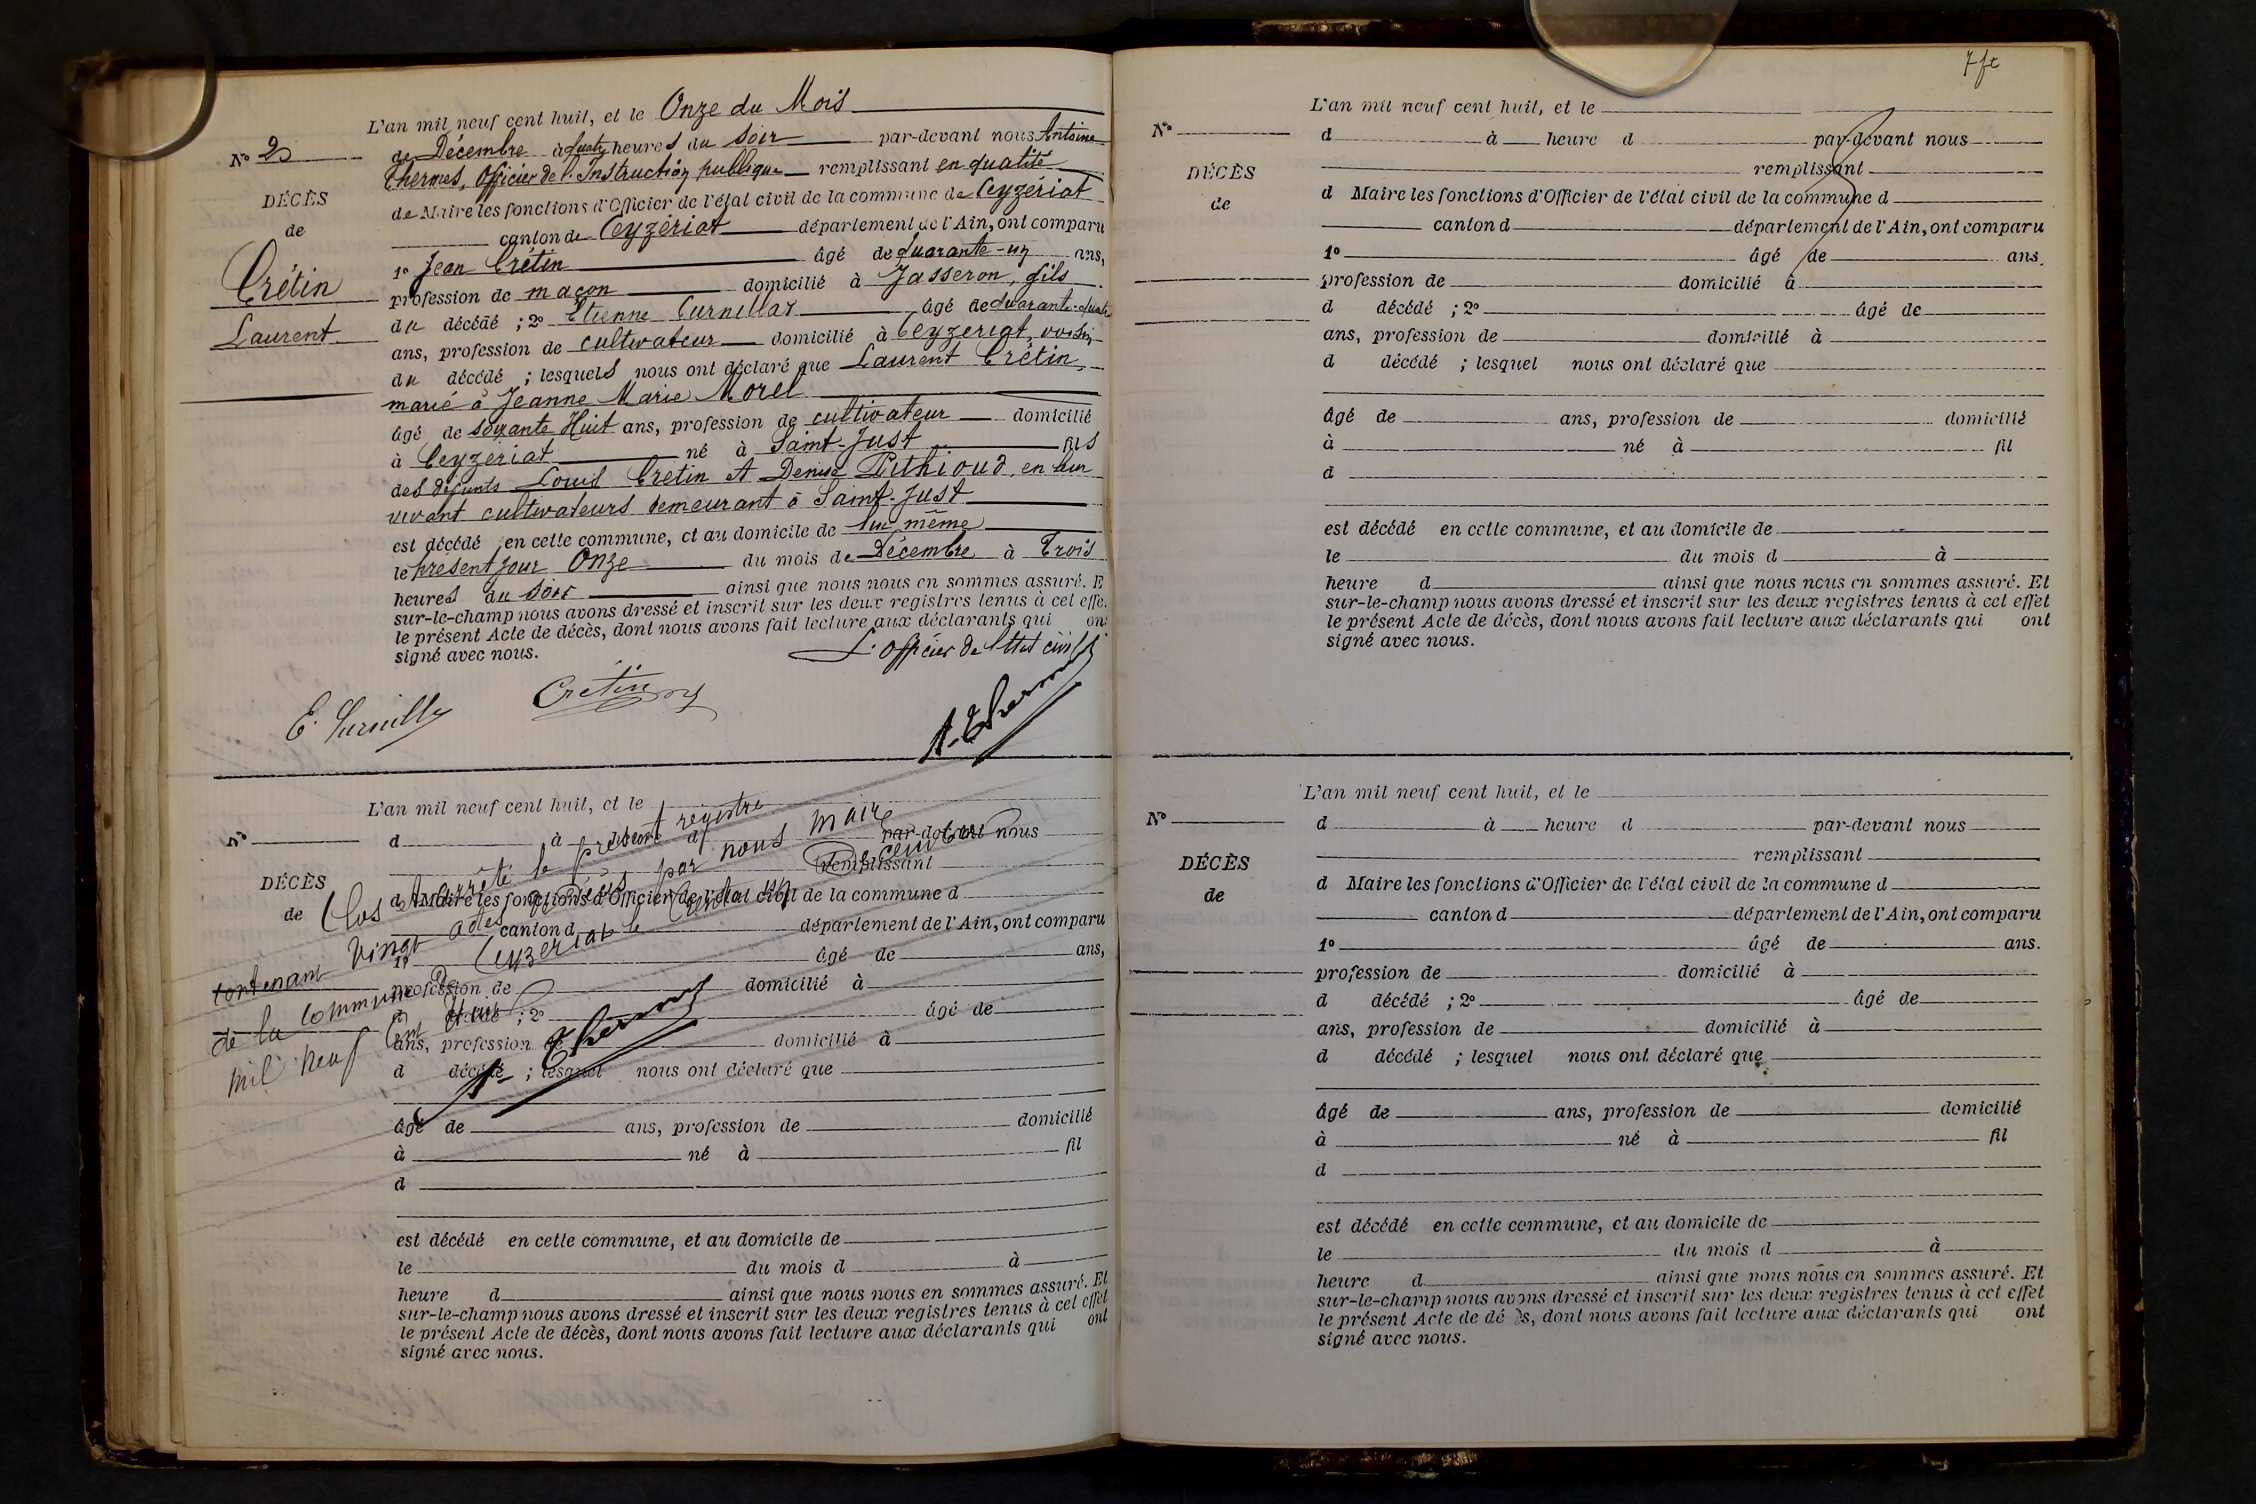 L'an mil neuf cent huit, et le Onze du Mois
de Décembre à quatre heures du soir par-devant nous Antoine
Thermes, Officier de l'Instruction publique remplissant en qualité
de Maire les fonctions d'Officier de l'état civil de la commune de Ceyzériat
canton de Ceyzériat département de l'Ain, ont comparu
1° Jean Crétin âgé de quarante-un ans,
profession de maçon domicilié à Jasseron, fils
du décédé ; 2° Etienne âgé de quarante-quatre
ans, profession de cultivateur domicilié à Ceyzériat, voisin
du décédé ; lesquels nous ont déclaré que Laurent Crétin,
marié à Jeanne Marie Morel
âgé de soixante Huit ans, profession de cultivateur domicilié
à Ceyzériat né à Saint-Just fils
des défunts Louis Cretin et Denise en leur
vivant cultivateurs demeurant à Saint-Just
est décédé en cette commune, et au domicile de lui même
le présent jour Onze du mois de Décembre à Trois
heures du soir ainsi que nous nous en sommes assuré. E
sur-le-champ nous avons dressé et inscrit sur les deux registres tenus à cet effe.
le présent Acte de décès, dont nous avons fait lecture aux déclarants qui on
signé avec nous.
L'officier de l'Etat civil
N° 20
DÉCÈS
de
Crétin
Laurent
Crétin
A. Thermes
L'an mil neuf cent huit, et le
N°
d à heure d par-devant nous
remplissant
DÉCÈS
de
d Maire les fonctions d'Officier de l'état civil de la commune d
canton d département de l'Ain, ont comparu
1° âgé de ans,
profession de domicilié à
d décédé ; 2° âgé de
ans, profession de domicilié à
d décédé ; lesquel nous ont déclaré que
âgé de ans, profession de domicilié
à né à fil
d
est décédé en cette commune, et au domicile de
le du mois d à
heure d ainsi que nous nous en sommes assuré. Et
sur-le-champ nous avons dressé et inscrit sur les deux registres tenus à cet effet
le présent Acte de décès, dont nous avons fait lecture aux déclarants qui ont
signé avec nous.
Clos et arrêté le présent registre
contenant vingt actes par nous Maire
de la commune de Ceyzériat le Décembre
mil neuf cent Huit
A. Thermes
7 ft
L'an mil neuf cent huit, et le
N°
d à heure d par-devant nous
remplissant
DÉCÈS
de
d Maire les fonctions d'Officier de l'état civil de la commune d
canton d département de l'Ain, ont comparu
1° âgé de ans.
profession de domicilié à
d décédé ; 2° âgé de
ans, profession de domicilié à
d décédé ; lesquel nous ont déclaré que
âgé de ans, profession de domicilié
à né à fil
d
est décédé en cette commune, et au domicile de
le du mois d à
heure d ainsi que nous nous en sommes assuré. Et
sur-le-champ nous avons dressé et inscrit sur les deux registres tenus à cet effet
le présent Acte de décès, dont nous avons fait lecture aux déclarants qui ont
signé avec nous.
L'an mil neuf cent huit, et le
N°
d à heure d par-devant nous
remplissant
DÉCÈS
de
d Maire les fonctions d'Officier de l'état civil de la commune d
canton d département de l'Ain, ont comparu
1° âgé de ans.
profession de domicilié à
d décédé ; 2° âgé de
ans, profession de domicilié à
d décédé ; lesquel nous ont déclaré que
âgé de ans, profession de domicilié
à né à fil
d
est décédé en cette commune, et au domicile de
le du mois d à
heure d ainsi que nous nous en sommes assuré. Et
sur-le-champ nous avons dressé et inscrit sur les deux registres tenus à cet effet
le présent Acte de dé ès, dont nous avons fait lecture aux déclarants qui ont
signé avec nous.